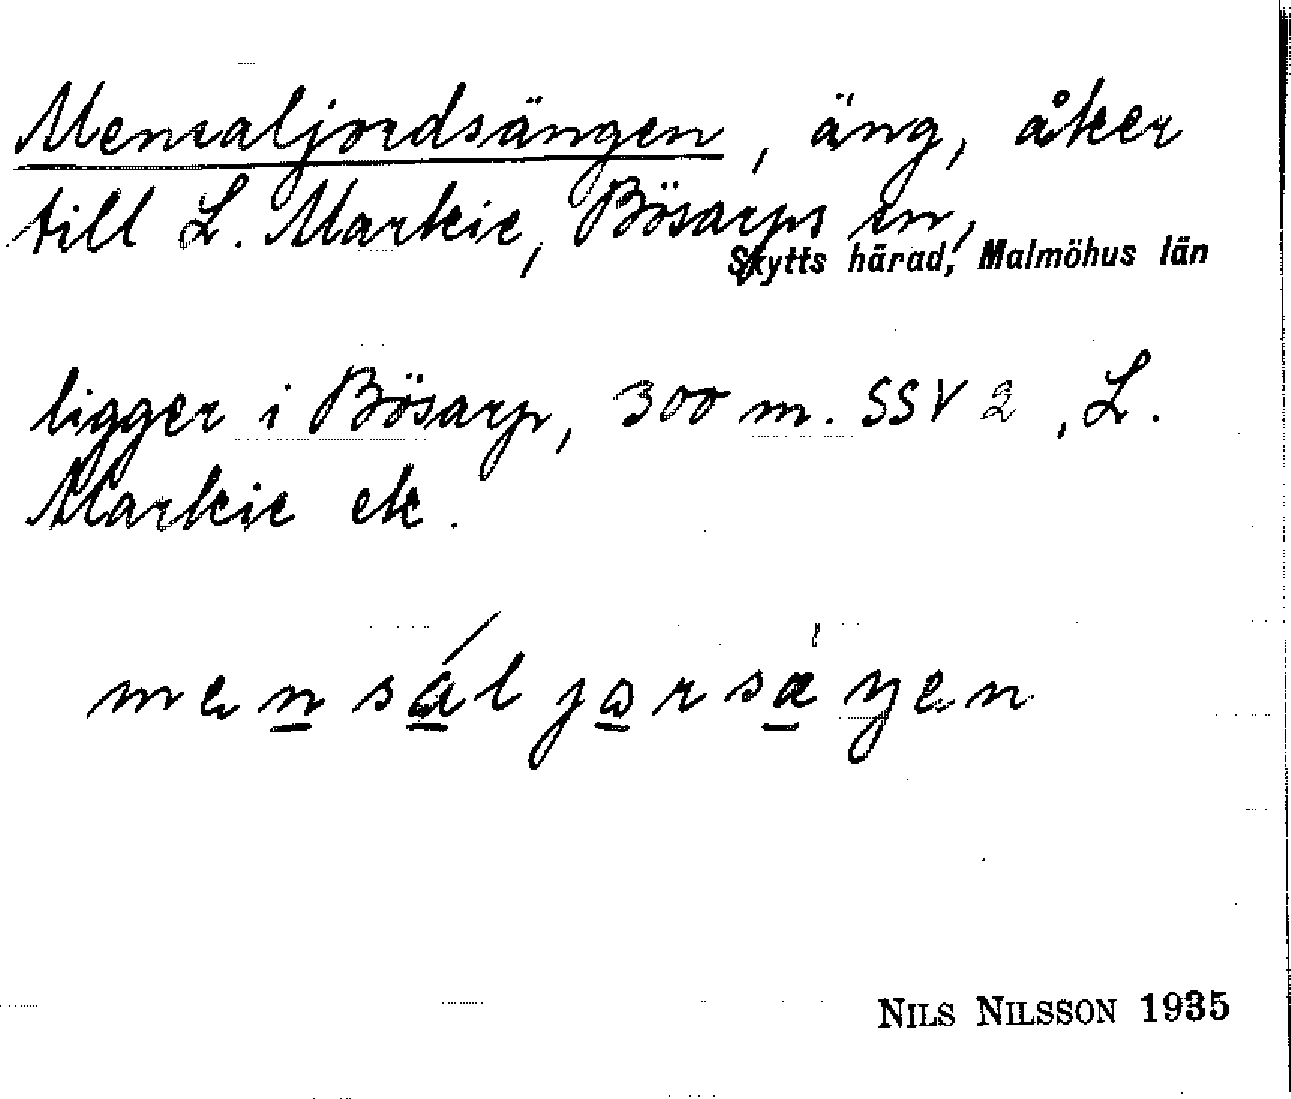 Mensaljordsängen, äng, åker
till L. Markie, Bösarps sn,
Skytts härad, Malmöhus län
ligger i Bösarp, 300 m. SSV 2, L.
Markie ek.
mensáljorsæ̀ŋen
NILS NILSSON 1935